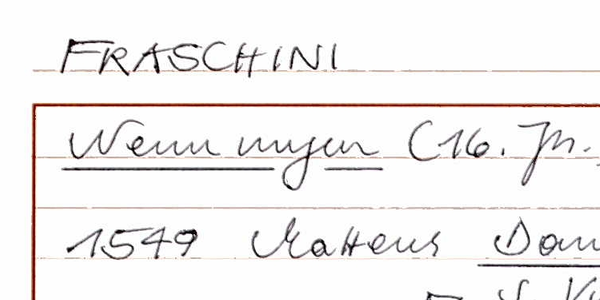 FRASCHINI
Wenn mysen (16. Jh.
1549 Matteus Dan